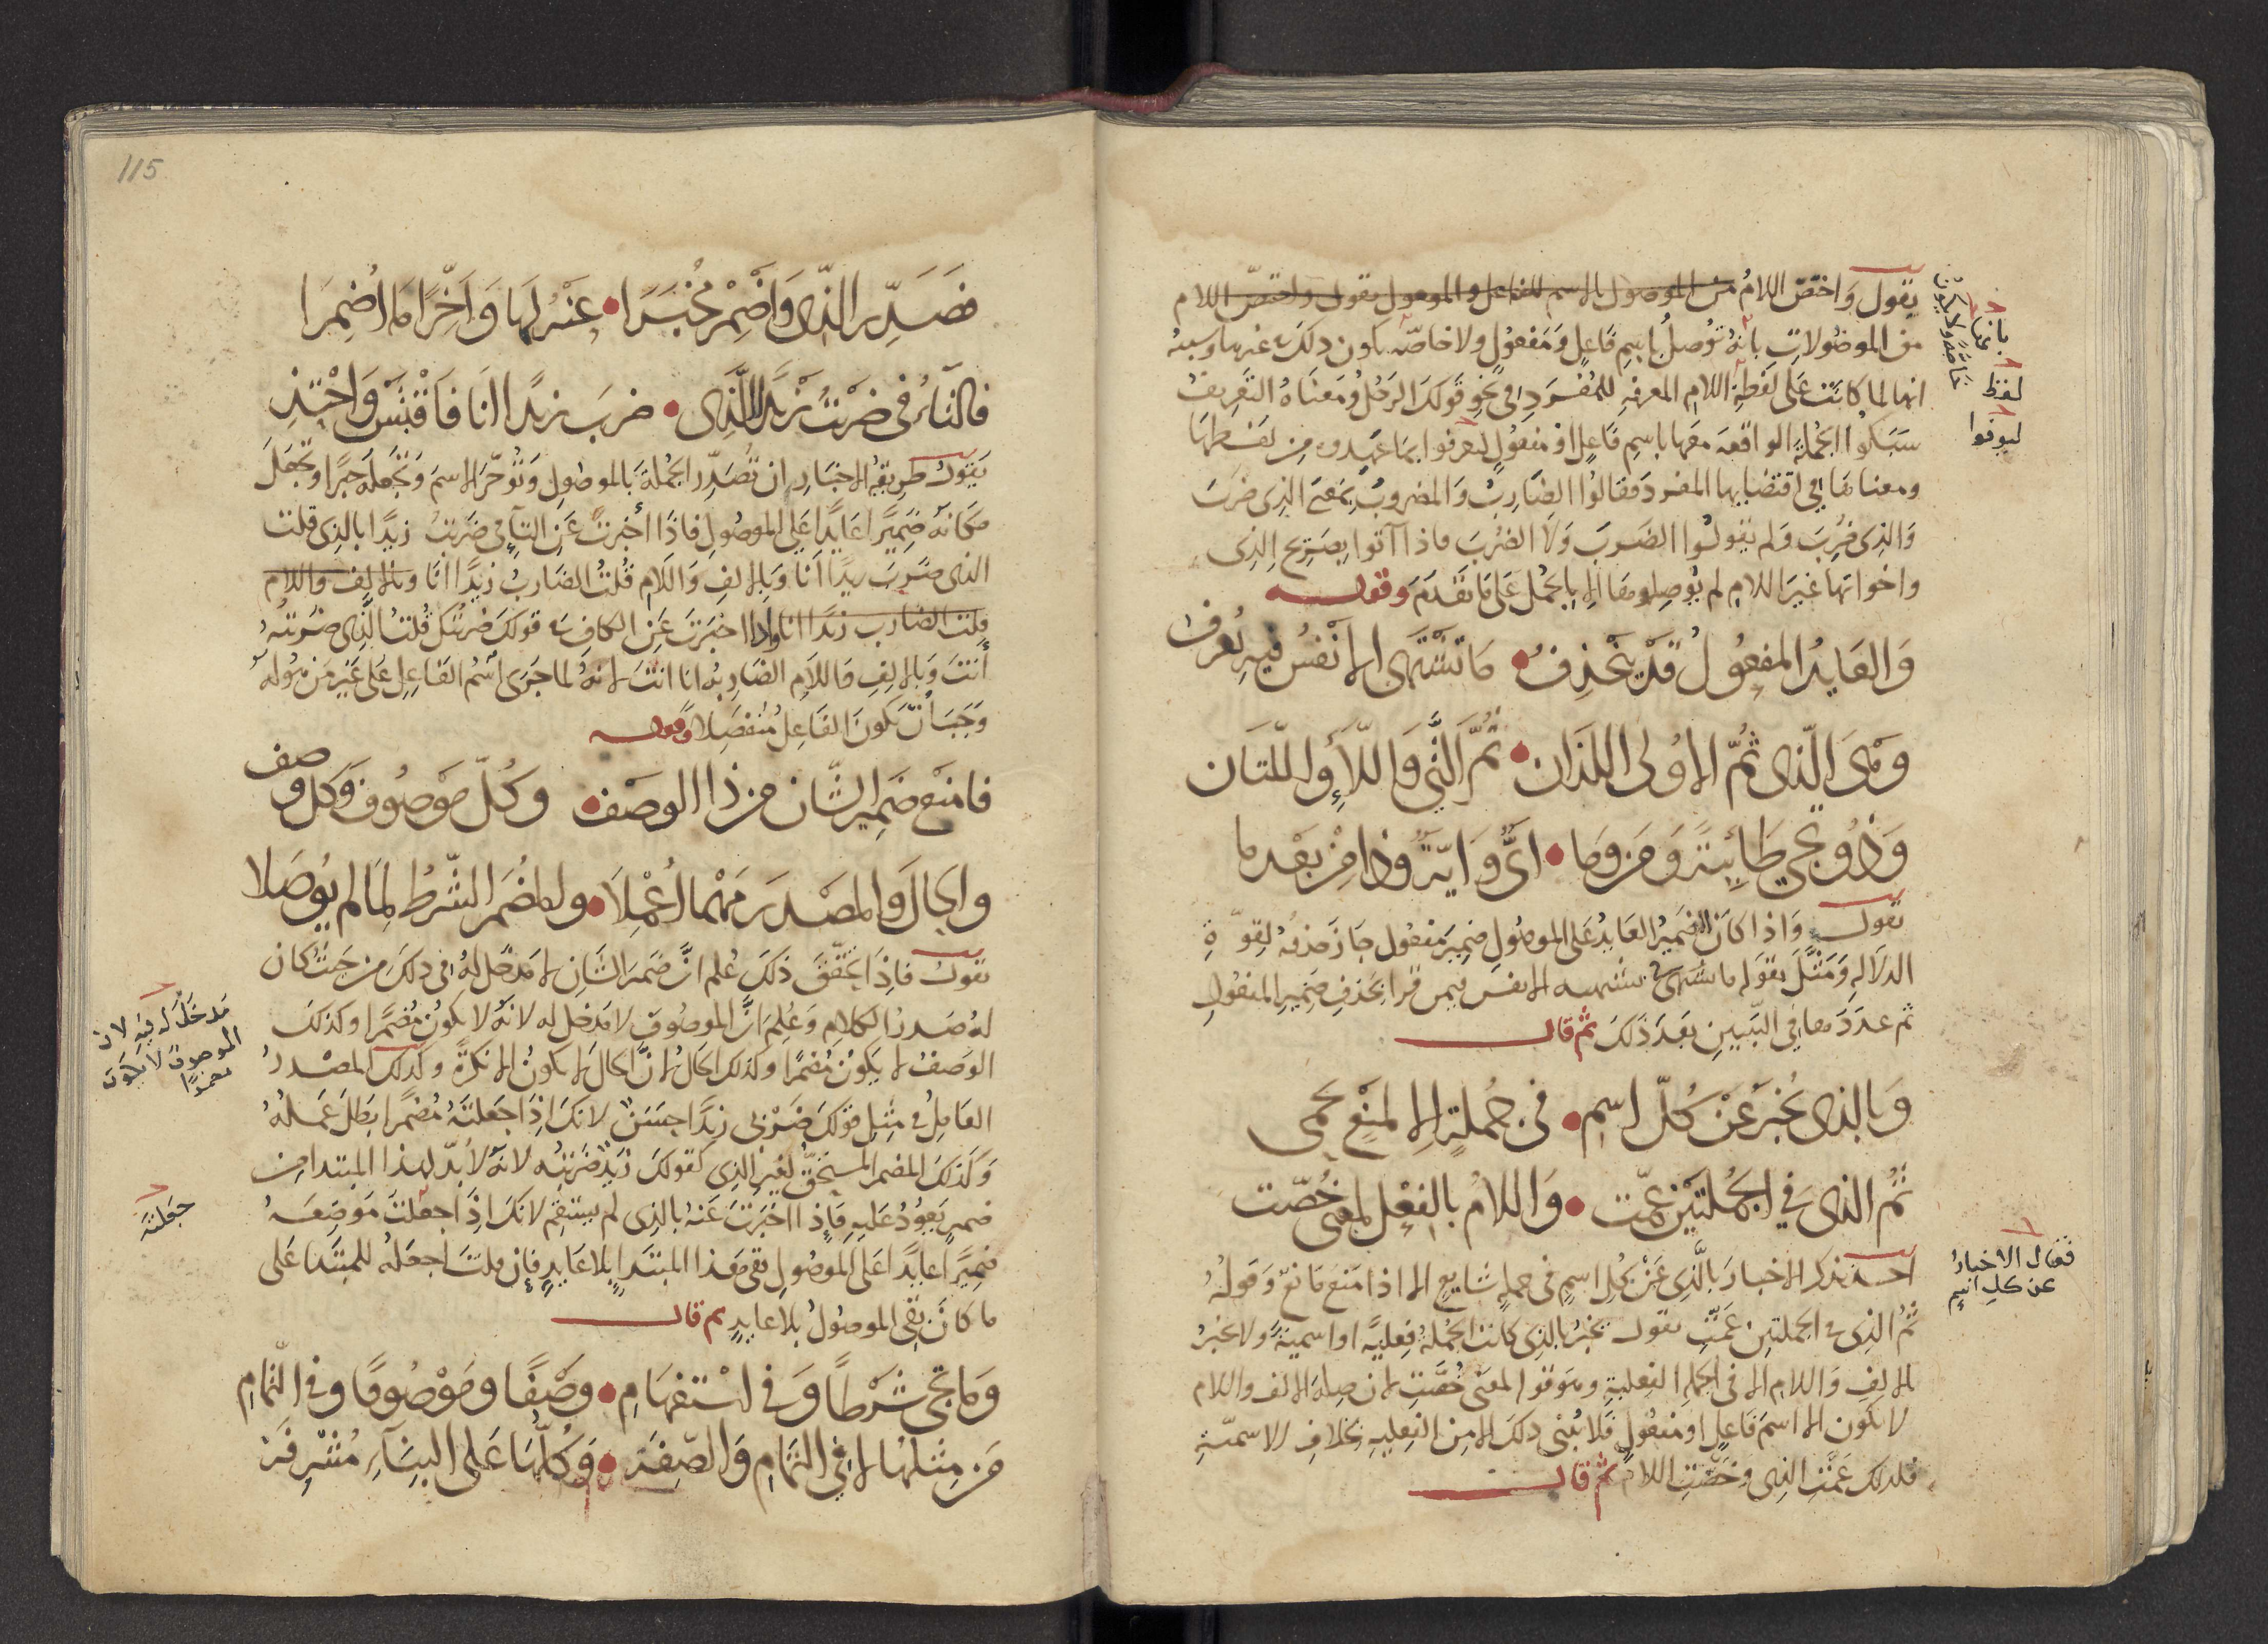 يقول واختص اللام من الموصول بالاسم للفاعل والمفعول يقول واختص اللام
من الموصولات بانه توصل باسم فاعل ومفعول ولا خاصة يكون ذلك في غيرها وسببه
انها لما كانت على لفظة اللام المعرفة للمفرد في نحو قولك الرجل ومعناه التعريف
سبكوا الجملة الواقعة معها باسم فاعل او مفعول ليعرفوا بما عهدوه من لفظها
ومعناها في اقتضايها المفرد فقالوا الضارب والمضروب بمعنى الذي ضرب
والذي ضُرِبَ ولم يقولوا الضرب ولا الضُرِبَ فاذا آتوا بصريح الذي
واخواتها غير اللام لم يوصلوها الا بالجمل على ما تقدم وقوله
والعايد المفعول قد ينحذف • ما تشتهي الانفس فيه يعرف
وهي الذي ثم الاولى اللذان • ثم التي واللاء واللتان
وذو يجي طائية ومن وما • اي واية وذا من بعد ما
يقول واذا كان الضمير العايد على الموصول ضمير مفعول جاز حذفه لقوة
الدلالة ومثل بقوله ما تشتهي تشتهيه الانفس فيمن قرا بحذف ضمير المفعول
ثم عددها في البيتين بعد ذلك ثم قال
وبالذي يُخبر عن كل اسم • في جملة الا لمنع يحمي
ثم الذي في الجملتين عمّت • واللام بالفعل لمعنى خُصّت
اخذ يذكر الاخبار بالذي عن كل اسم في جملة شايع الا اذا منع مانع وقوله
ثم الذي في الجملتين عمّت يقول يخبر بالذي كانت الجملة فعلية او اسمية ولا يخبر
بالالف واللام الا في الجملة الفعلية وهو قوله لمعنى خُصّت لان صلة الالف واللام
لا يكون الا اسم فاعل او مفعول فلا يُبنى ذلك الا من الفعلية بخلاف الاسمية
فلذلك عمّت الذي وخصّت اللام ثم قال
بانها
خاصة ولا يكون
لفظ
ليوفوا
فقال الاخبار
عن كل اسم
115
فصدّر الذي واضمر مخبرا • عنه لها واخّرا ما اُضمرا
فالتاء في ضربتُ زيدا للذي • ضرب زيدا انا فاقتبس واحتذ
يقول طريقة الاخبار ان تصدّر الجملة بالموصول وتؤخّر الاسم وتجعله خبرا وتجعل
مكانه ضميرا عايدا على الموصول فاذا اخبرت عن التاء في ضربتُ زيدا بالذي قلت
الذي ضرب زيدا انا وبالالف واللام قلت الضارب زيدا انا وبالالف واللام
قلت الضارب زيدا انا واذا اخبرت عن الكاف في قولك ضربتك قلت الذي ضربته
أنتَ وبالالف واللام الضاربه انا انت لانه لما جرى اسم الفاعل على غير من هو له
وجب أن يكون الفاعل منفصلا وقوله
فامنع ضمير الشان من ذا الوصف • وكل موصوف وكل وصف
والحال والمصدر مهما أُعملا • والمضمر الشرط لما لم يوصلا
يقول فاذا تحقق ذلك عُلم انّ ضمير الشان لا مدخل له في ذلك من حيث كان
له صدر الكلام وعُلم انّ الموصوف لا مدخل له لانه لا يكون مضمرا وكذلك
الوصف لا يكون مضمرا وكذلك الحال لانّ الحال لا يكون الا نكرة وكذلك المصدر
العامل في مثل قولك ضربي زيدا حسن لانك اذا جعلته مضمرا بطل عمله
وكذلك المضمر المستحق لغير الذي كقولك زيد ضربته لانه لا بدّ لهذا المبتدا من
ضمير يعود عليه فاذا اخبرت عنه بالذي لم يستقم لانك اذا جعلت موضعه
ضميرا عايدا على الموصول بقي هذا المبتدا بلا عايد فان قلت اجعله للمبتدا على
ما كان بقي الموصول بلا عايد ثم قال
وما تجي شرطا وفي استفهام • وصفا وموصوفا وفي التمام
من مثلها لا في التمام والصفة • وكلها على البناء مشرفة
مدخل له فيه لان
الموصوف لا يكون
مضمرا
جعلته